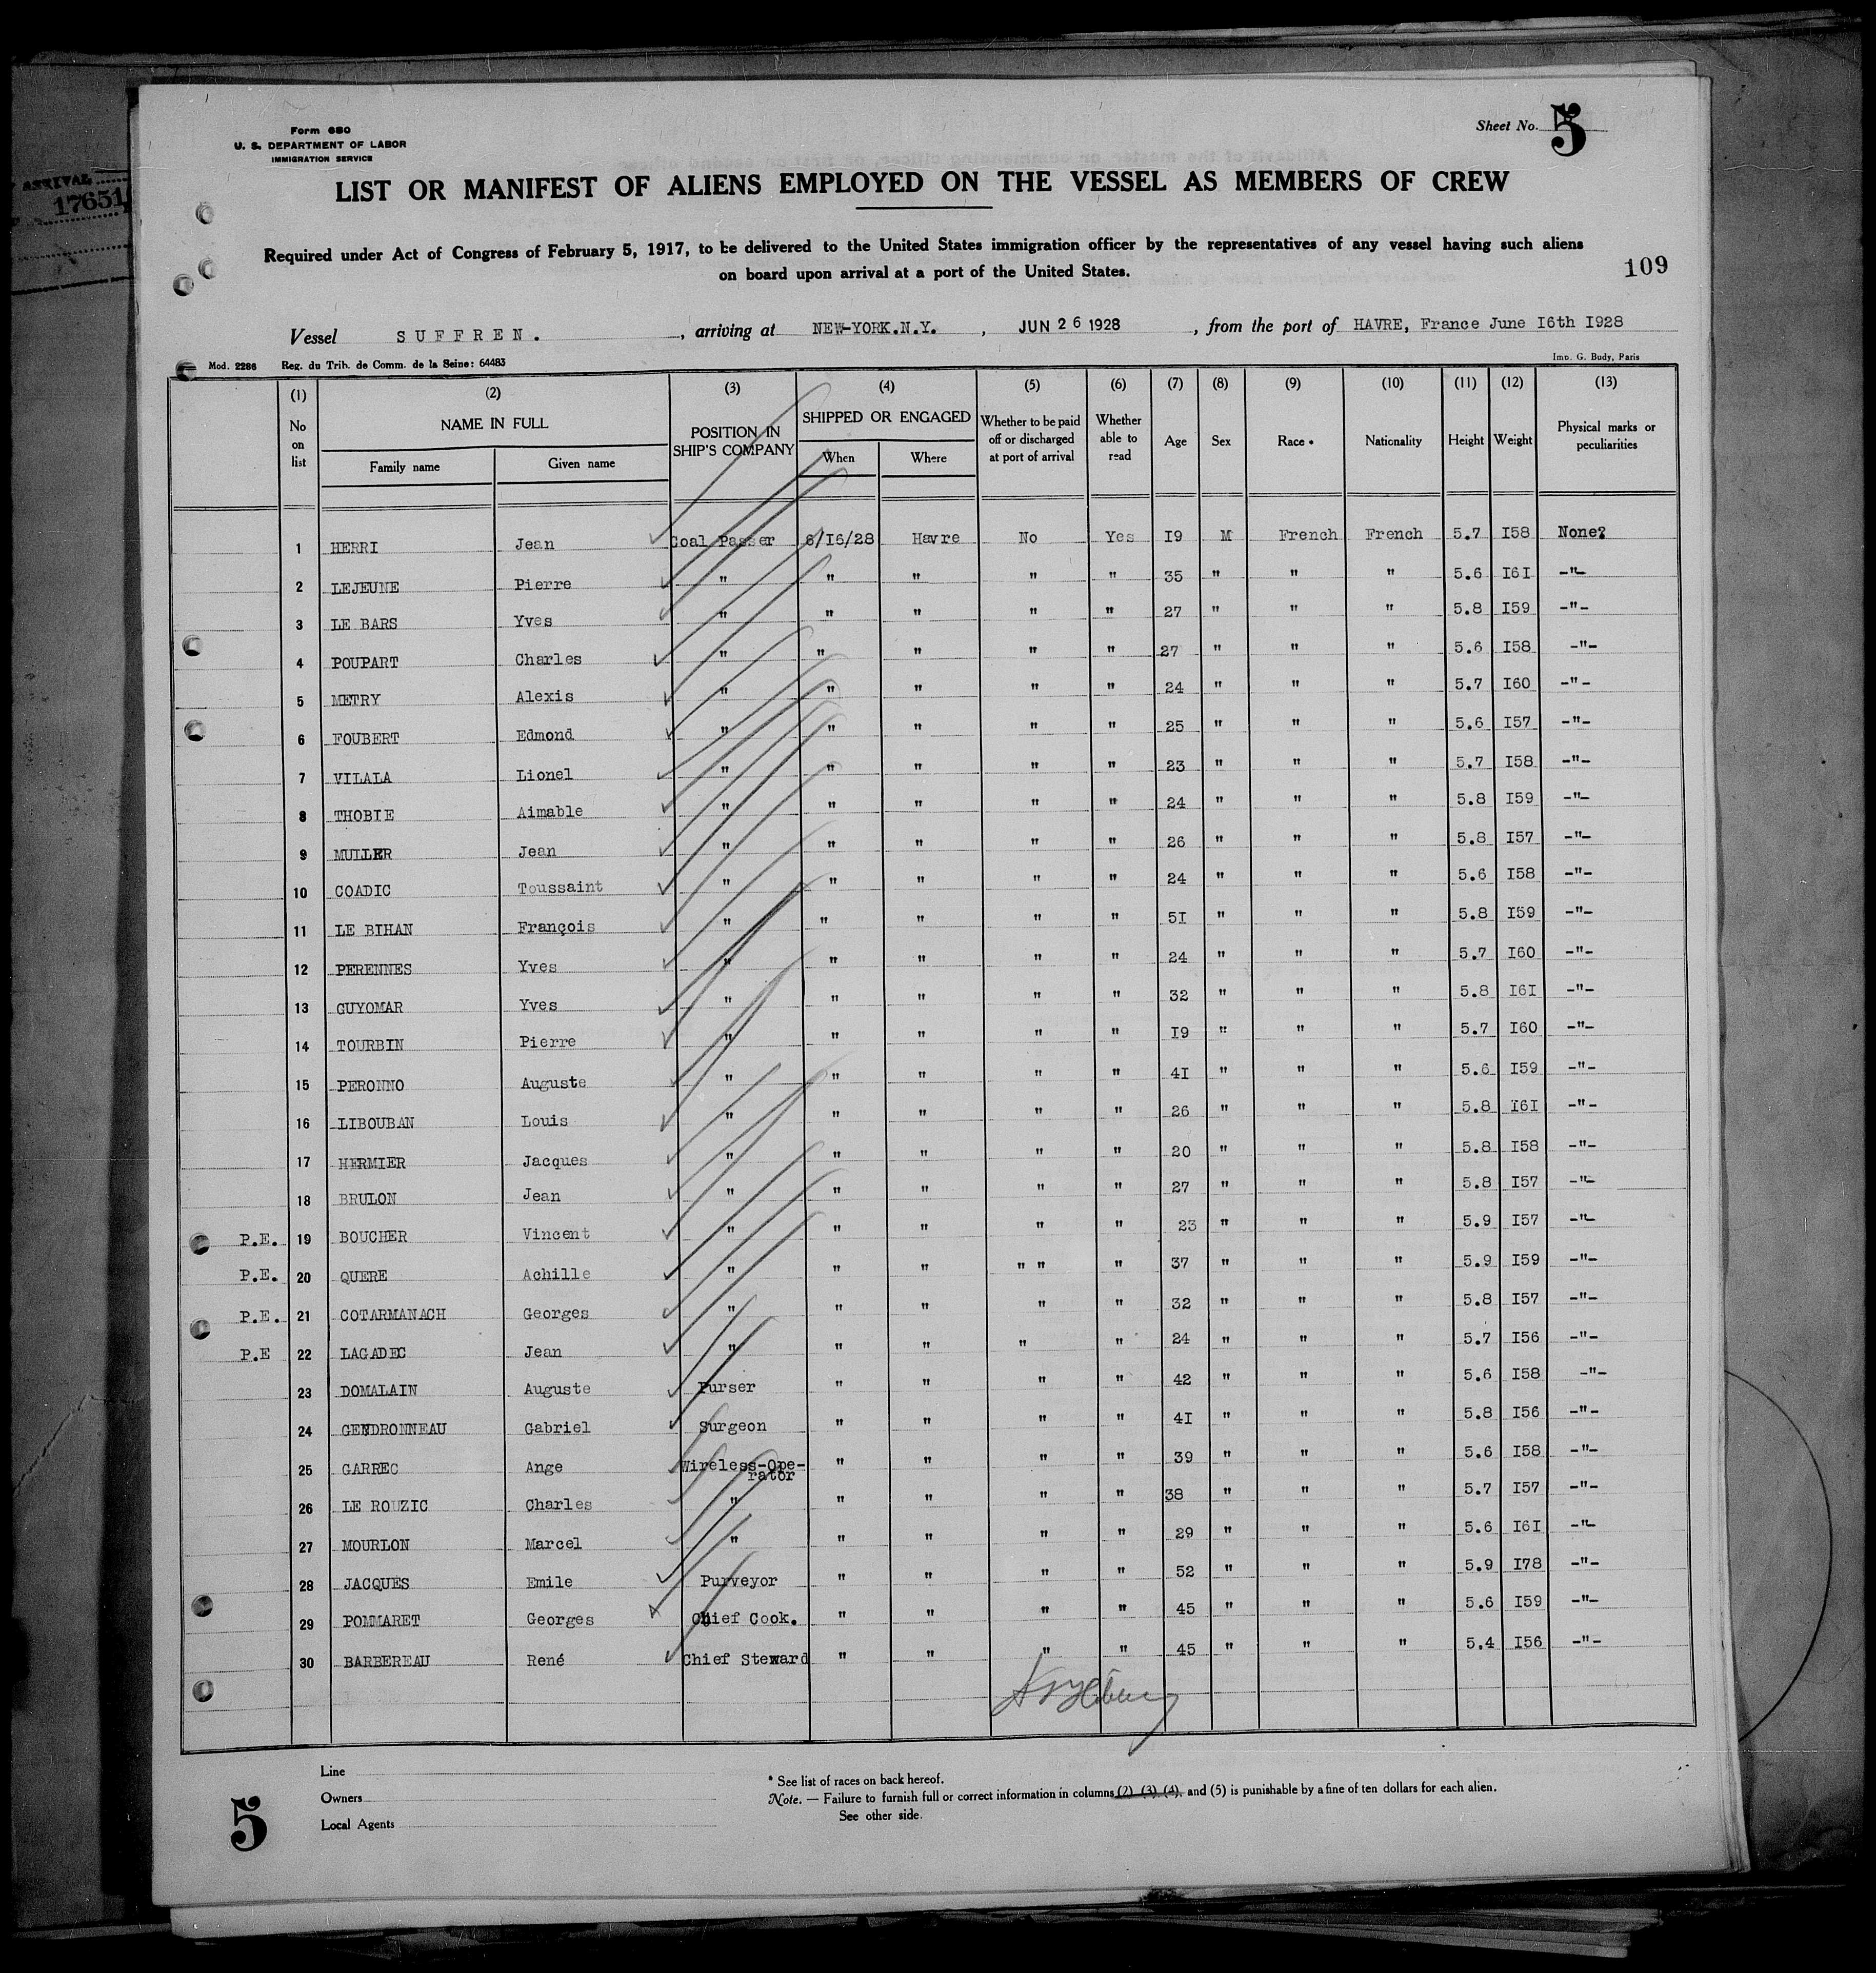 Form 680
U. S. DEPARTMENT OF LABOR
IMMIGRATION SERVICE
Sheet No. 5
ARRIVAL
17651
LIST OR MANIFEST OF ALIENS EMPLOYED ON THE VESSEL AS MEMBERS OF CREW
Required under Act of Congress of February 5, 1917, to be delivered to the United States immigration officer by the representatives of any vessel having such aliens
on board upon arrival at a port of the United States.
109
Vessel SUFFREN. , arriving at NEW-YORK.N.Y. , JUN 26 1928 , from the port of HAVRE, France June I6th I928
Mod. 2286 Reg. du Trib. de Comm. de la Seine: 64483 Imp. G. Budy, Paris
(1) (2) (3) (4) (5) (6) (7) (8) (9) (10) (11) (12) (13)
No on list NAME IN FULL Family name Given name POSITION IN SHIP'S COMPANY SHIPPED OR ENGAGED When Where Whether to be paid off or discharged at port of arrival Whether able to read Age Sex Race * Nationality Height Weight Physical marks or peculiarities
1 HERRI Jean Coal Passer 6/I6/28 Havre No Yes I9 M French French 5.7 I58 None?
2 LEJEUNE Pierre " " " " " 35 " " " 5.6 I6I -"-
3 LE BARS Yves " " " " " 27 " " " 5.8 I59 -"-
4 POUPART Charles " " " " " 27 " " " 5.6 I58 -"-
5 METRY Alexis " " " " " 24 " " " 5.7 I60 -"-
6 FOUBERT Edmond " " " " " 25 " " " 5.6 I57 -"-
7 VILALA Lionel " " " " " 23 " " " 5.7 I58 -"-
8 THOBIE Aimable " " " " " 24 " " " 5.8 I59 -"-
9 MULLER Jean " " " " " 26 " " " 5.8 I57 -"-
10 COADIC Toussaint " " " " " 24 " " " 5.6 I58 -"-
11 LE BIHAN François " " " " " 5I " " " 5.8 I59 -"-
12 PERENNES Yves " " " " " 24 " " " 5.7 I60 -"-
13 GUYOMAR Yves " " " " " 32 " " " 5.8 I6I -"-
14 TOURBIN Pierre " " " " " I9 " " " 5.7 I60 -"-
15 PERONNO Auguste " " " " " 4I " " " 5.6 I59 -"-
16 LIBOUBAN Louis " " " " " 26 " " " 5.8 I6I -"-
17 HERMIER Jacques " " " " " 20 " " " 5.8 I58 -"-
18 BRULON Jean " " " " " 27 " " " 5.8 I57 -"-
P.E. 19 BOUCHER Vincent " " " " " 23 " " " 5.9 I57 -"-
P.E. 20 QUERE Achille " " " " " " 37 " " " 5.9 I59 -"-
P.E. 21 COTARMANACH Georges " " " " " 32 " " " 5.8 I57 -"-
P.E 22 LAGADEC Jean " " " " " 24 " " " 5.7 I56 -"-
23 DOMALAIN Auguste Purser " " " " 42 " " " 5.6 I58 -"-
24 GENDRONNEAU Gabriel Surgeon " " " " 4I " " " 5.8 I56 -"-
25 GARREC Ange Wireless-Ope-rator " " " " 39 " " " 5.6 I58 -"-
26 LE ROUZIC Charles " " " " " 38 " " " 5.7 I57 -"-
27 MOURLON Marcel " " " " " 29 " " " 5.6 I6I -"-
28 JACQUES Emile Purveyor " " " " 52 " " " 5.9 I78 -"-
29 POMMARET Georges Chief Cook. " " " " 45 " " " 5.6 I59 -"-
30 BARBEREAU René Chief Steward " " " " 45 " " " 5.4 I56 -"-
Line
Owners
Local Agents
5
* See list of races on back hereof.
Note. — Failure to furnish full or correct information in columns (2) (3) (4), and (5) is punishable by a fine of ten dollars for each alien.
See other side.